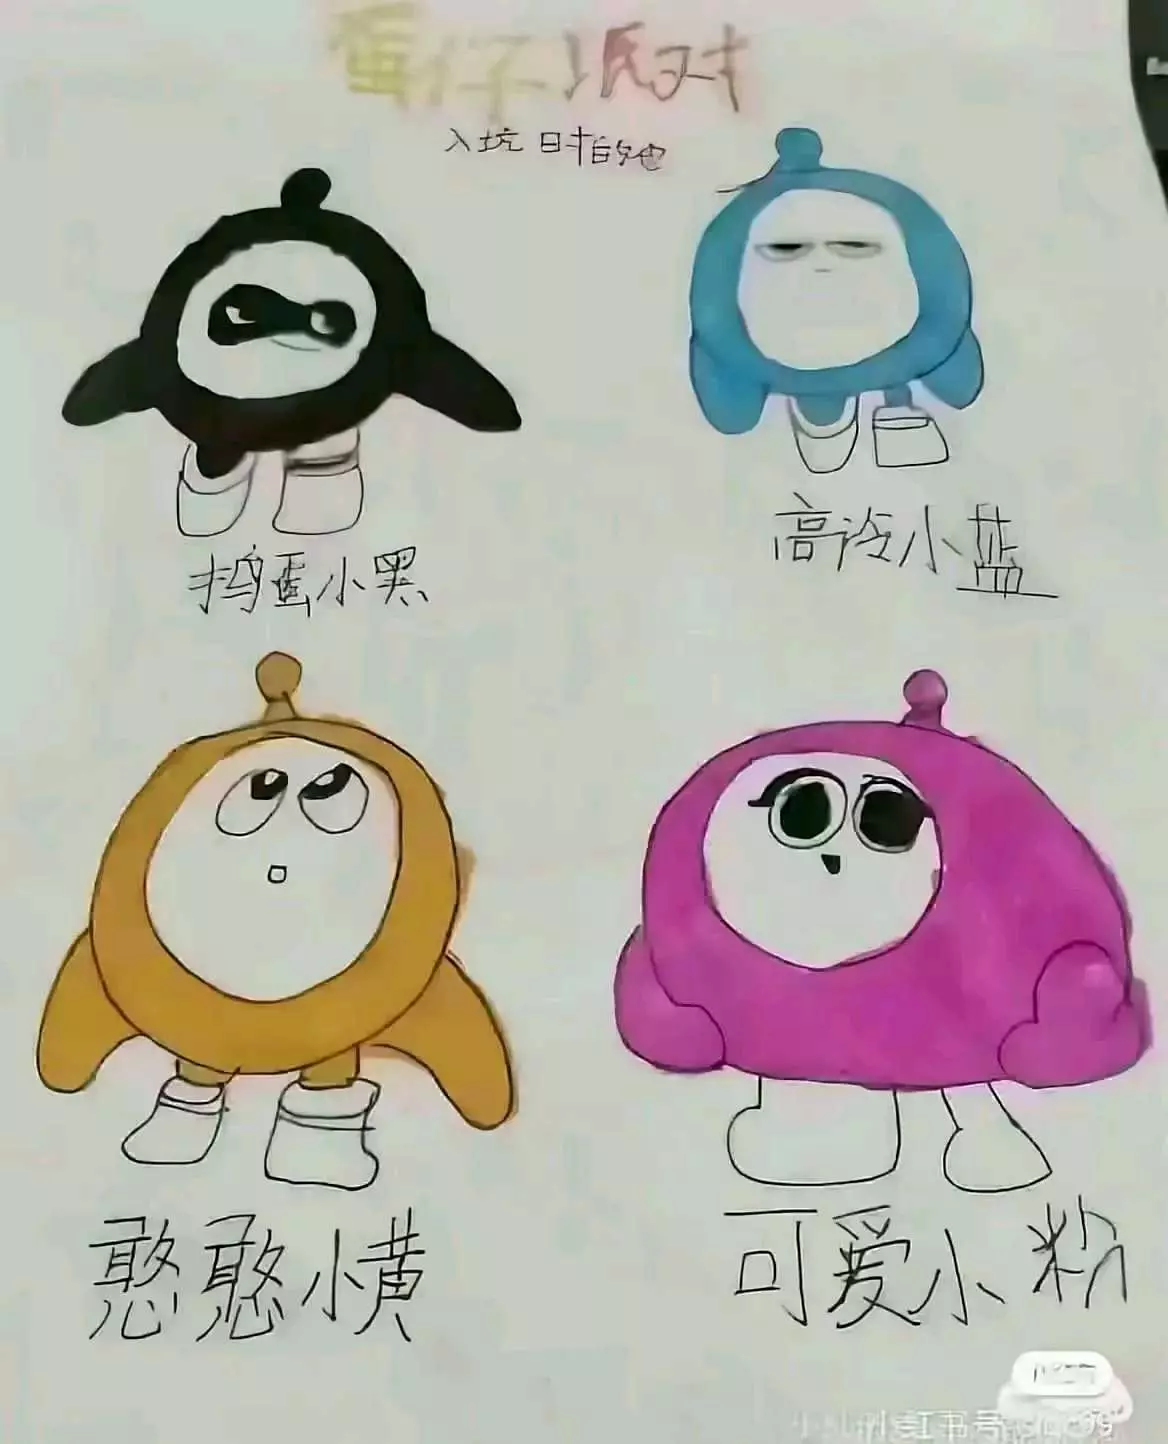 蛋仔派对
入坑时的她
捣蛋小黑
高冷小蓝
憨憨小黄
可爱小粉